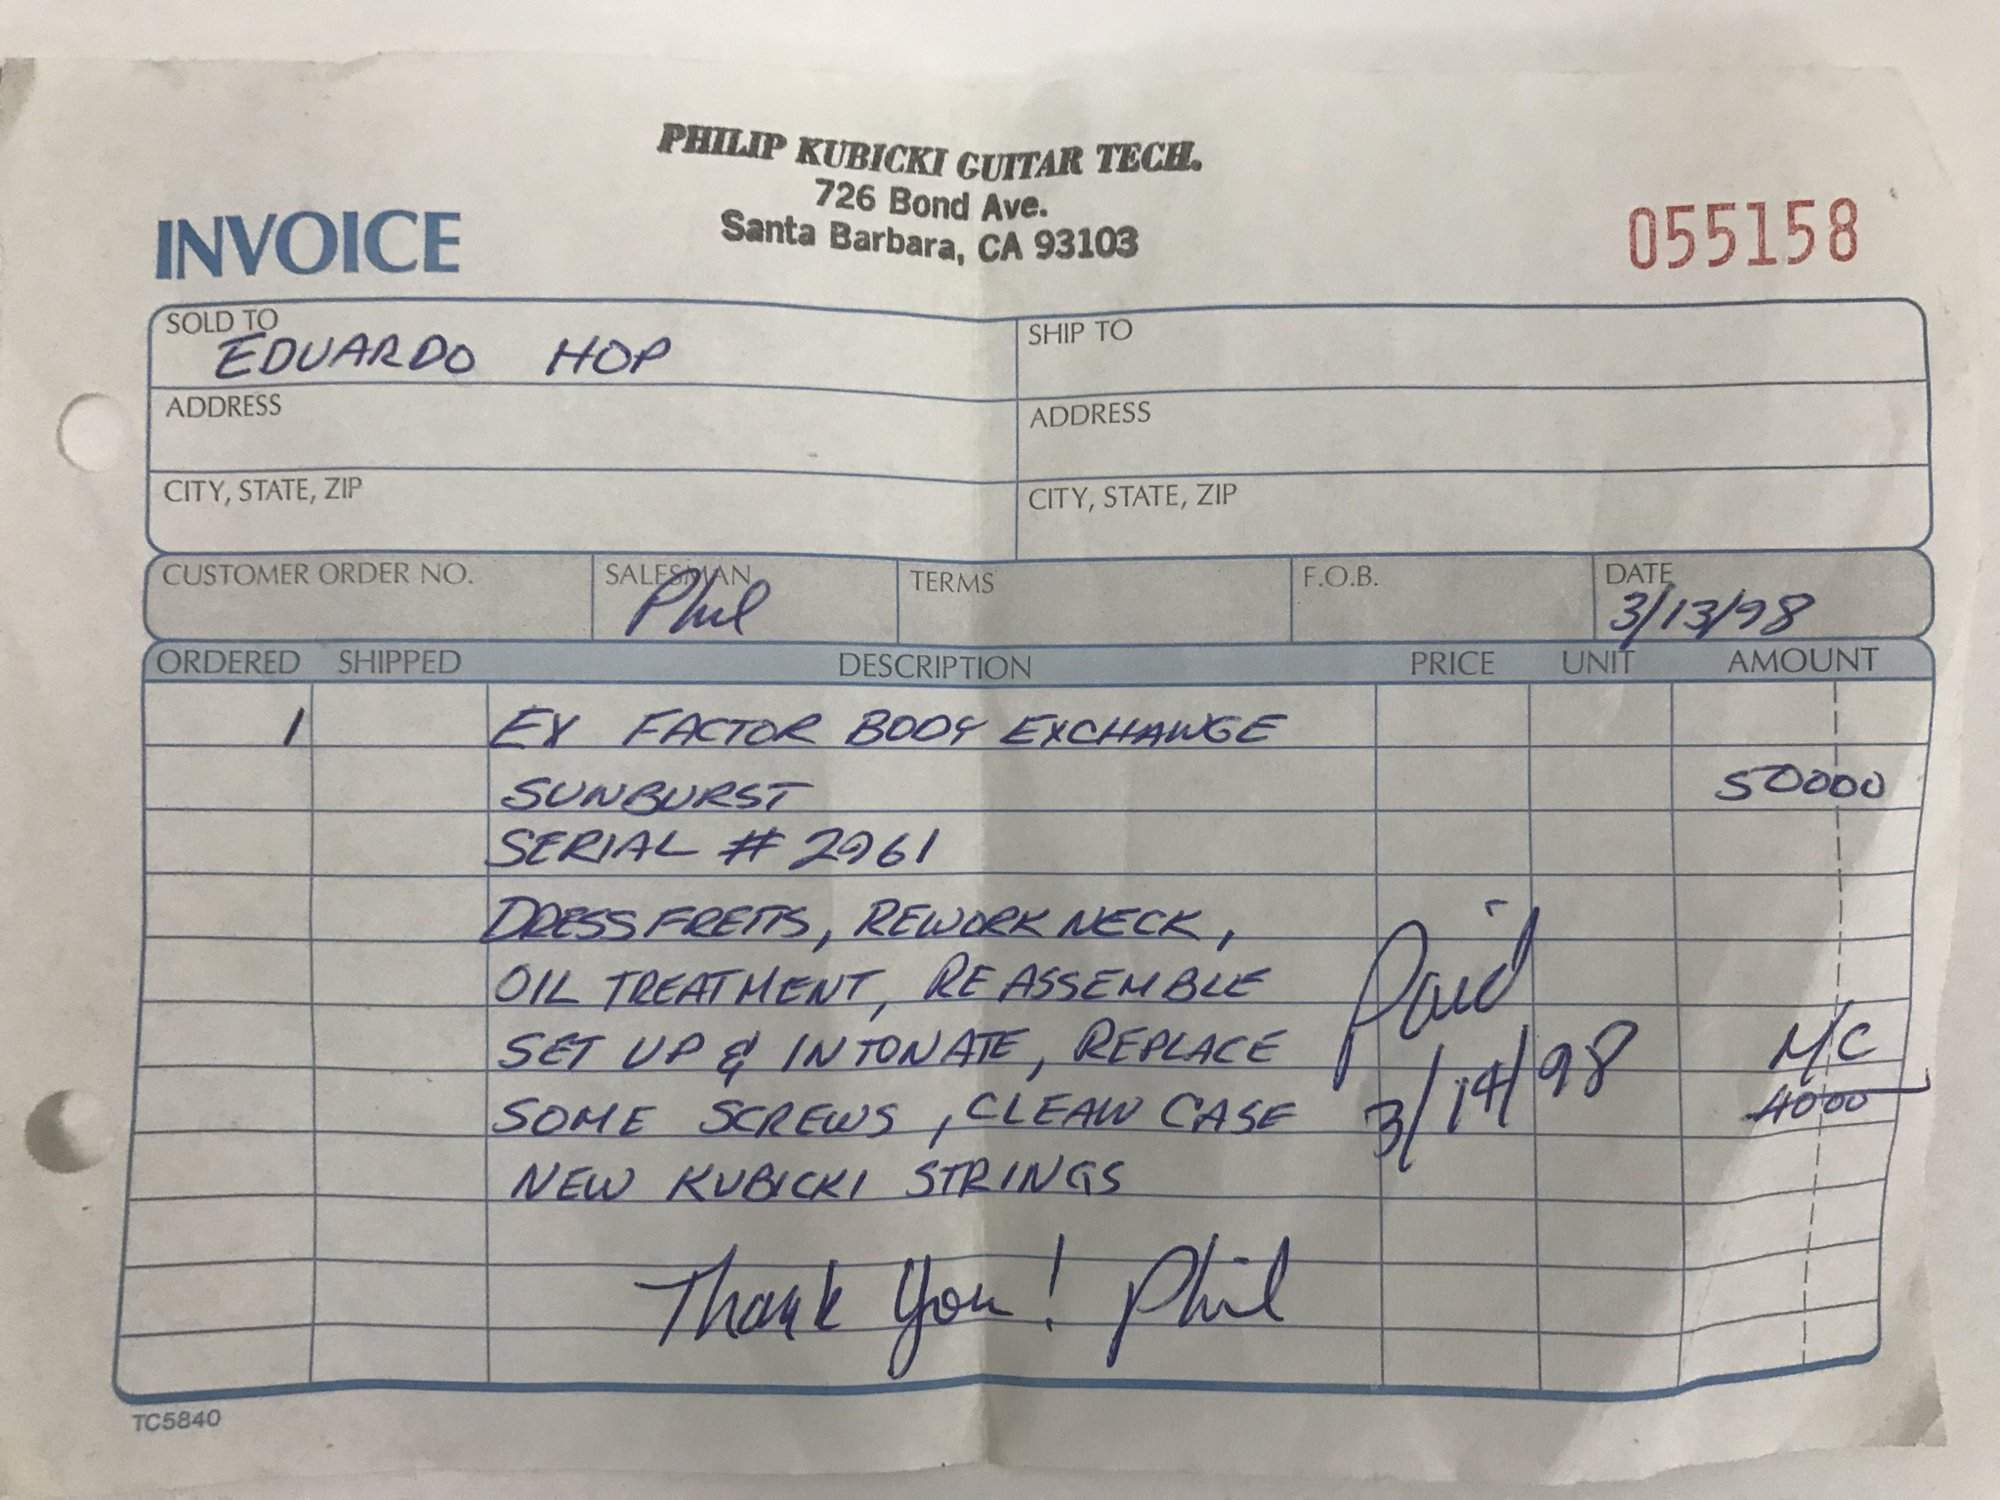 PHILIP KUBICKI GUITAR TECH.
726 Bond Ave.
Santa Barbara, CA 93103
INVOICE
055158
SOLD TO
EDUARDO HOP
SHIP TO
ADDRESS
ADDRESS
CITY, STATE, ZIP
CITY, STATE, ZIP
CUSTOMER ORDER NO. SALESMAN TERMS F.O.B. DATE
Phil 3/13/98
ORDERED SHIPPED DESCRIPTION PRICE UNIT AMOUNT
1 EX FACTOR BODY EXCHANGE
SUNBURST 50000
SERIAL # 2961
DRESS FRETS, REWORK NECK,
OIL TREATMENT, REASSEMBLE Paid
SET UP & INTONATE, REPLACE 3/14/98 M/C
SOME SCREWS, CLEAN CASE 4000
NEW KUBICKI STRINGS
Thank You! Phil
TC5840